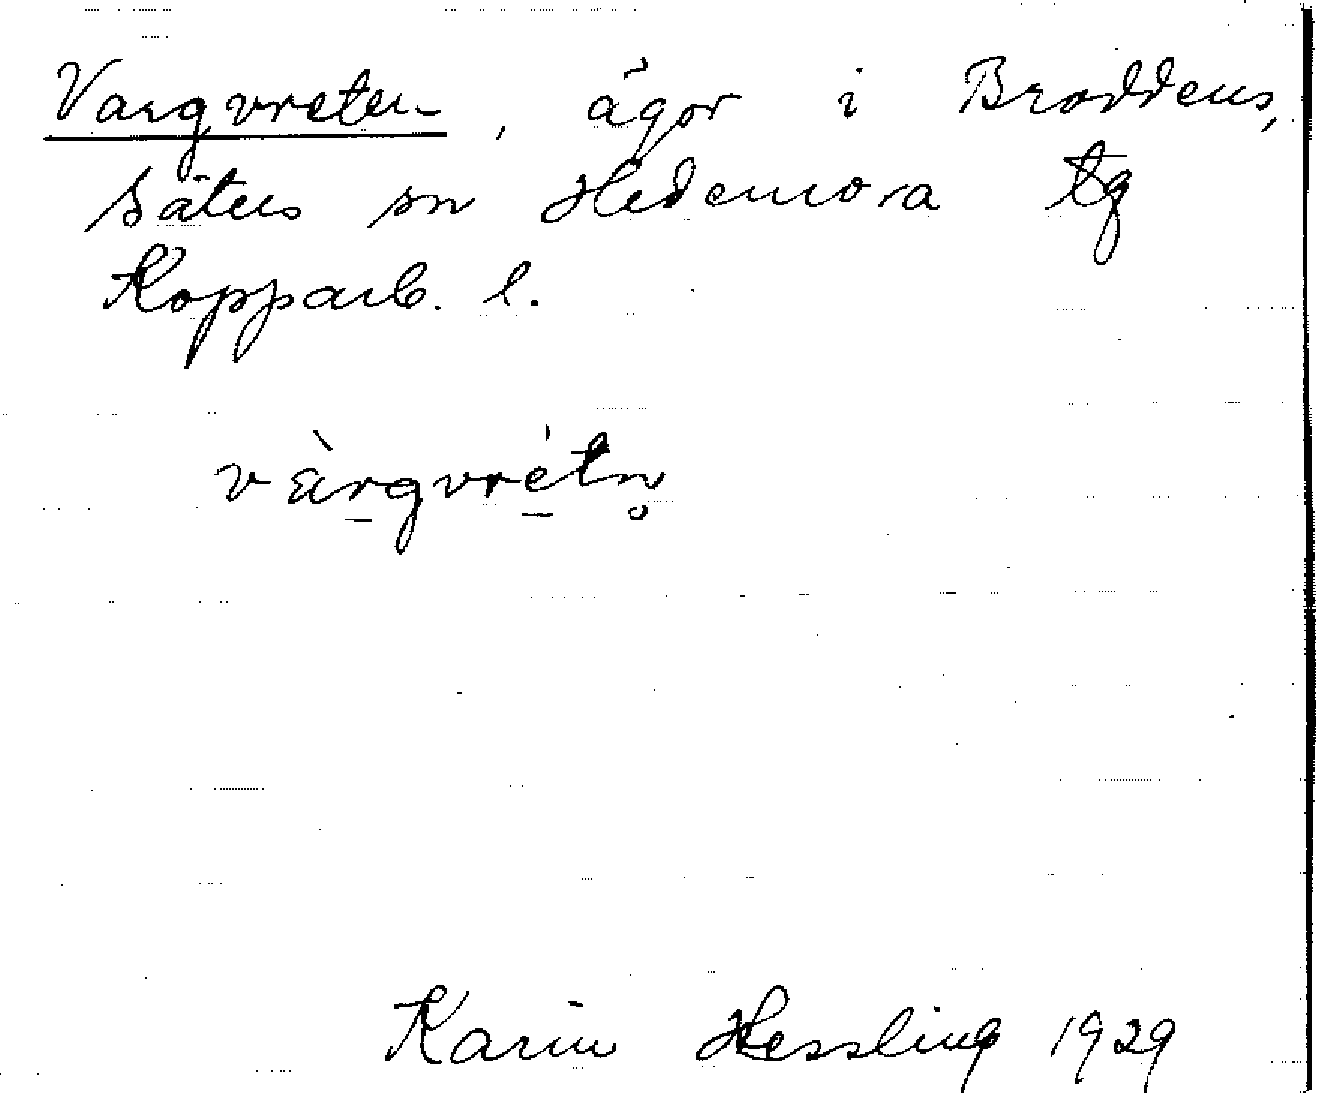 Vargvreten, ägor i Broddens,
Säters sn Hedemora tg
Kopparb. l.
vàrgvrétn̥
Karin Hessling 1929